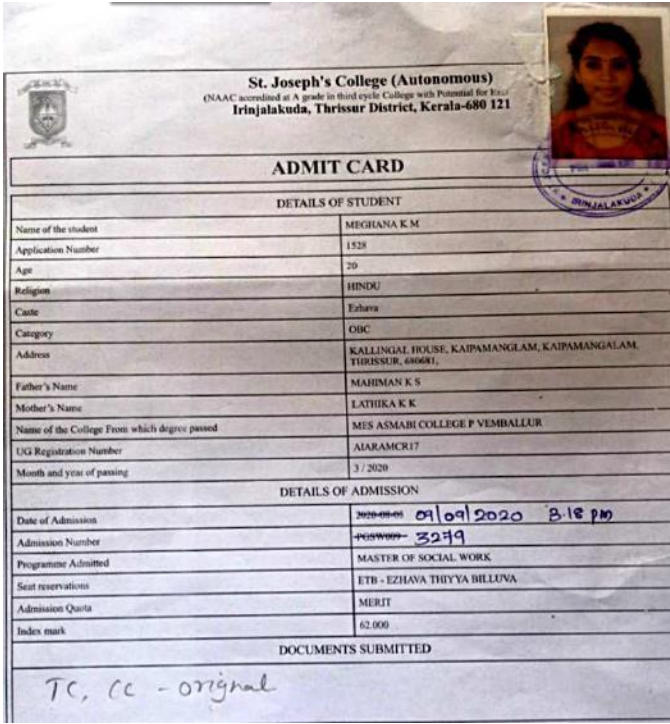 St. Joseph's College (Autonomous)
(NAAC accredited at A grade in third cycle College with Potential for
Irinjalakuda, Thrissur District, Kerala-680 121
ADMIT CARD
DETAILS OF STUDENT
Name of the student MEGHANA K M
Application Number 1528
Age 20
Religion HINDU
Caste Ezhava
Category OBC
Address KALLINGAL HOUSE, KAIPAMANGLAM, KAIPAMANGALAM,
THRISSUR, 680681,
Father's Name MAHIMAN K S
Mother's Name LATHIKA K K
Name of the College From which degree passed MES ASMABI COLLEGE P VEMBALLUR
UG Registration Number AIARAMCR17
Month and year of passing 3 / 2020
DETAILS OF ADMISSION
Date of Admission 09/09/2020 3.18 pm
Admission Number PGSW009 3279
Programme Admitted MASTER OF SOCIAL WORK
Seat reservations ETB - EZHAVA THIYYA BILLUVA
Admission Quota MERIT
Index mark 62.000
DOCUMENTS SUBMITTED
TC, CC - orignal